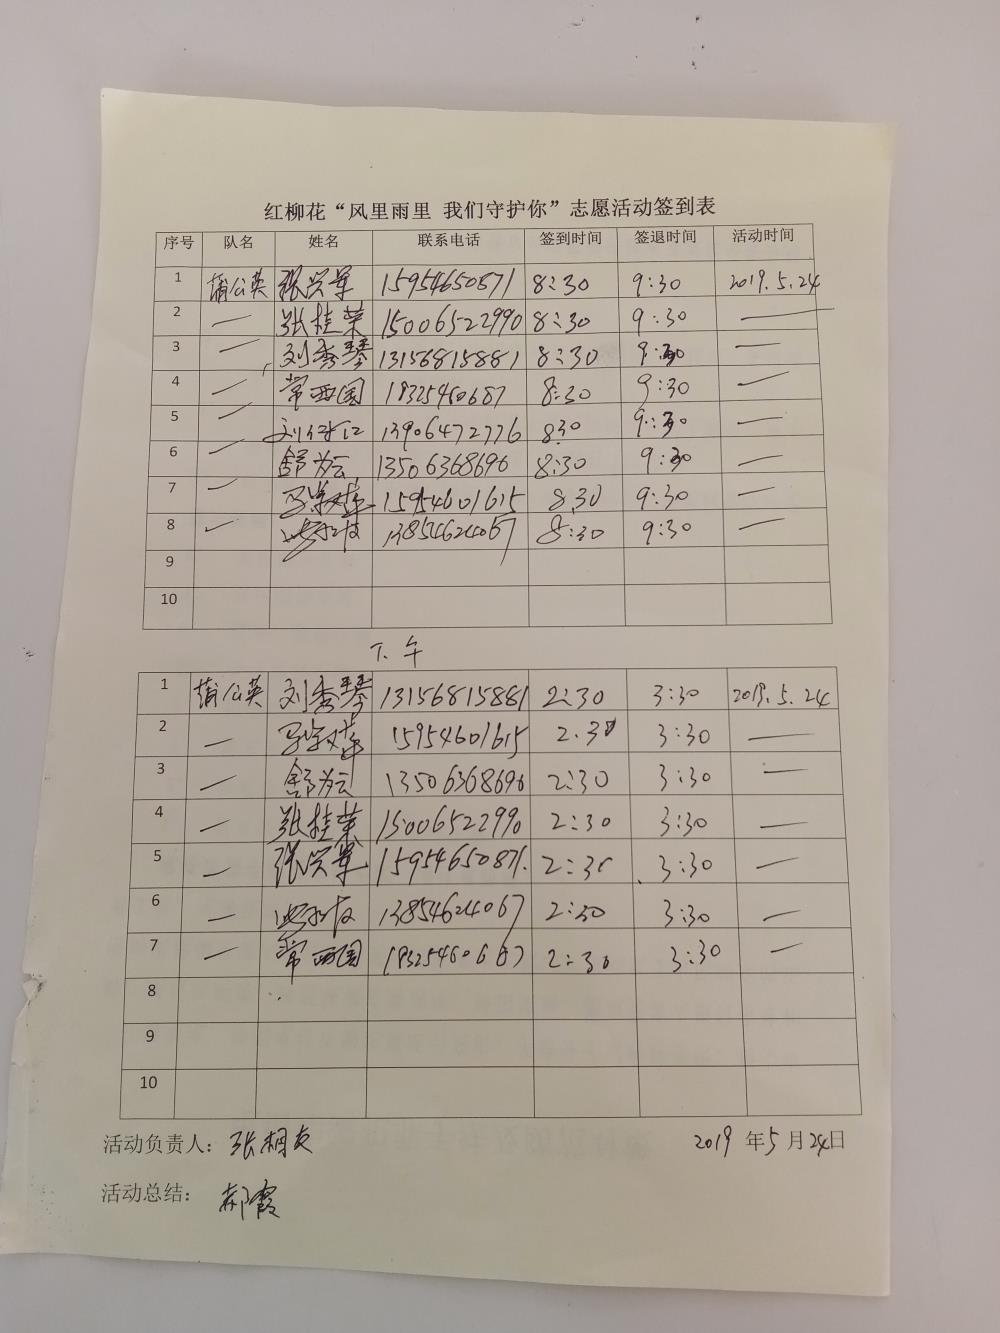 红柳花“风里雨里 我们守护你”志愿活动签到表
序号 队名 姓名 联系电话 签到时间 签退时间 活动时间
1 蒲公英 张兴军 15954650871 8:30 9:30 2019.5.24
2 — 张桂荣 15006522990 8:30 9:30 —
3 — 刘秀琴 13156815881 8:30 9:30 —
4 — 常西国 18325460687 8:30 9:30 —
5 — 13906472776 8:30 9:30 —
6 — 舒为云 13506368696 8:30 9:30 —
7 — 15954601615 8:30 9:30 —
8 — 13854624067 8:30 9:30 —
9
10
下午
1 蒲公英 刘秀琴 13156815881 2:30 3:30 2019.5.24
2 — 15954601615 2:30 3:30 —
3 — 舒为云 13506368696 2:30 3:30 —
4 — 张桂荣 15006522990 2:30 3:30 —
5 — 张兴军 15954650871 2:30 3:30 —
6 — 13854624067 2:30 3:30 —
7 — 常西国 18325460687 2:30 3:30 —
8
9
10
活动负责人：张相友 2019年5月24日
活动总结：郝霞